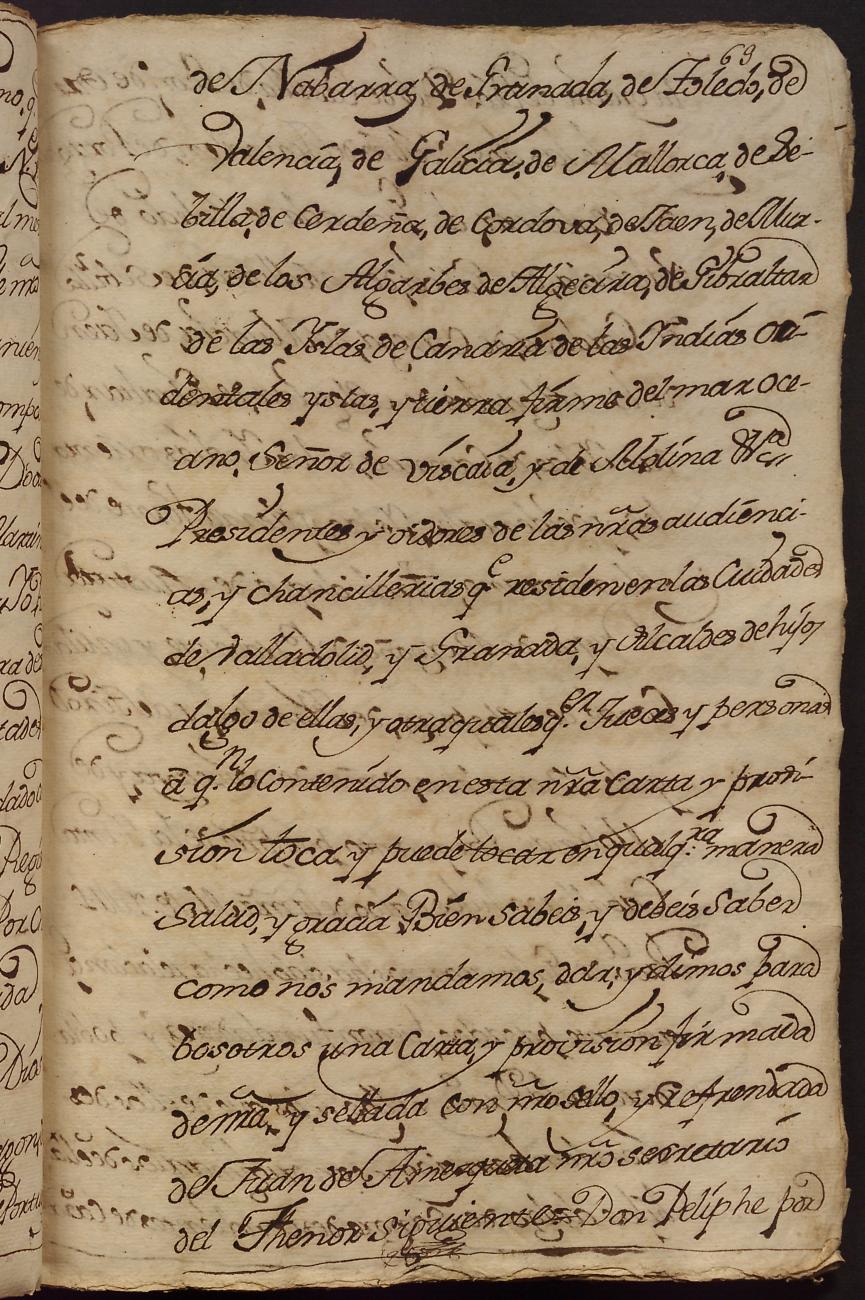 69
de Nabarra, de Granada, de Toledo, de
Valencia, de Galicia, de Mallorca, de Se-
billa, de Cerdeña, de Cordova, de Jaen, de Mur-
cia, de los Algarbes de Algecira, de Gibraltar
de las Yslas de Canaria de las Yndias oci-
dentales yslas, y tierra firme del mar oce-
ano, Señor de Viscaia, y de Molina &ca
Presidentes y oidores de las nrãs audienci-
as, y chancillerias qe residen en las Ciudades
de Valladolid, y Granada, y Alcaldes de hijos
dalgo de ellas, y otra qualesq.en Jueces y personas
à q.n lo contenido en esta nrã Carta y provi-
sion toca y puede tocar en qualq.ra manera
Salud, y gracia Bien sabeis, y debeis Saber
como nos mandamos, dar, y dimos para
bosotros una Carta, y provision firmada
de nrã, y sellada con nrõ sello, y refrendada
de Juan de Amezqueta nrõ secretario
del Thenor Siguiente = Don Peliphe por